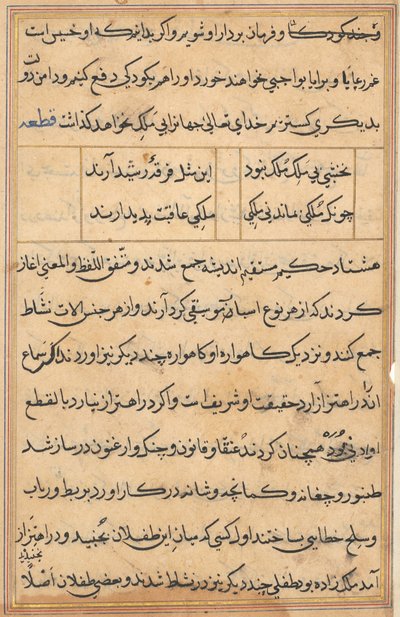 و چند کودک و فرمان بردار او شویم و اگر بدانیم که او خسیس است
عز رعایا و برایا بواجبی نخواهند خورد او را هم بکودکی دفع کنیم و دامن دولت
بدیگری خدای تعالی جهان را بی ملک نخواهد گذاشت قطعه
نخشبی بی ملک ملک نبود این مثل فرقه رشید آرند
چونکه ملکی نماند بی ملکی ملکی عاقبت پدید آرند
هشتاد حکیم مستقیم اندیشه جمع شدند و متفق اللفظ والمعنی آغاز
کردند که از هر نوع اسباب موسیقی گرد آرند و از هر جنس الات نشاط
جمع کنند و نزدیک گاهواره او گاهواره چند دیگر نیز آوردند اگر سماع
او را در اهتزاز آرد حقیقت او شریف است و اگر در اهتزاز نیارد بالقطع
او دنی بود همچنان کردند عنقا و قانون و چنک و ارغنون در ساز شد
طنبور و چغانه و کمانچه و شانه در کار اورد بربط و رباب
و خطایی بساختند اول کسی که میان این طفلان بجنبید و در اهتزاز
آمد ملک زاده بود طفلی چند دیگر نیز در نشاط شدند و بعضی طفلان اصلا
نجنبیدند